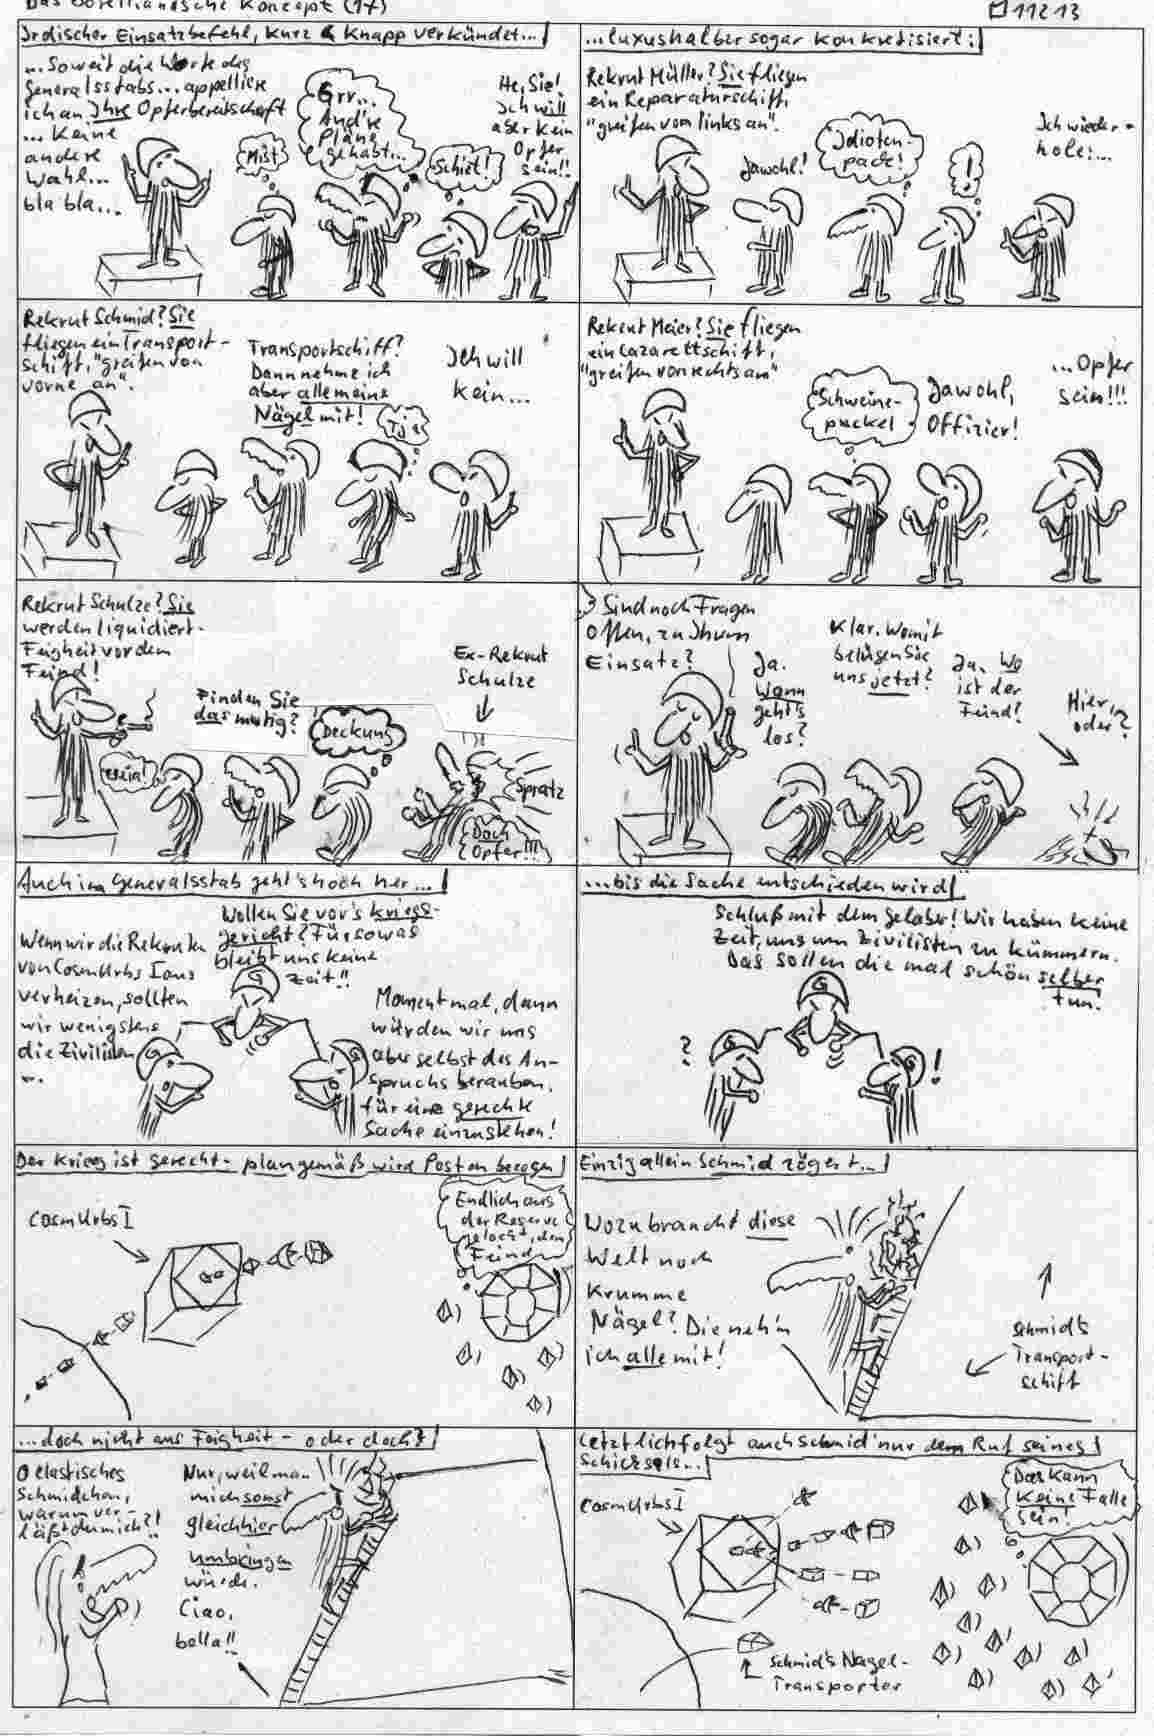 Das Borelliandsche Konzept (17)
11 12 13
Irdischer Einsatzbefehl, kurz & knapp verkündet...
...Soweit die Worte des
Generalsstabs... appelliere
ich an Ihre Opferbereitschaft
... keine
andere
Wahl...
bla bla...
Mist
Grr...
And're
Pläne
gehabt...
Schiet!
He, Sie!
Ich will
aber kein
Opfer
sein!!
...luxushalber sogar konkretisiert:
Rekrut Müller? Sie fliegen
ein Reparaturschiff,
"greifen von links an".
Jawohl!
Idioten-
pack!
!
Ich wieder-
hole:...
Rekrut Schmid? Sie
fliegen ein Transport-
schiff, "greifen von
vorne an".
Transportschiff?
Dann nehme ich
aber alle meine
Nägel mit!
Tja
Ich will
kein...
Rekrut Meier? Sie fliegen
ein Lazarettschiff,
"greifen von rechts an"
Schweine-
packel
Jawohl,
Offizier!
...Opfer
sein!!!
Rekrut Schulze? Sie
werden liquidiert-
Feigheit vor dem
Feind!
Finden Sie
das mutig?
Deckung
Ex-Rekrut
Schulze
Spratz
Doch
Opfer!!!
Sind noch Fragen
offen, zu Ihrem
Einsatz?
Ja.
Wann
geht's
los?
Klar. Womit
belügen Sie
uns jetzt?
Ja. Wo
ist der
Feind?
Hier,
oder?
Auch im Generalsstab geht's hoch her...
Wenn wir die Rekruten
von CosmUrbs I aus
verheizen, sollten
wir wenigstens
die Zivilisten
...
Wollen Sie vor's Kriegs-
gericht? Für sowas
bleibt uns keine
Zeit!!
Moment mal, dann
würden wir uns
aber selbst des An-
spruchs berauben,
für eine gerechte
Sache einzustehen!
...bis die Sache entschieden wird
Schluß mit dem Gelaber! Wir haben keine
Zeit, uns um Zivilisten zu kümmern.
Das sollen die mal schön selber
tun.
?
!
Der Krieg ist gerecht- plangemäß wird Posten bezogen
CosmUrbs I
Endlich aus
der Reserve
gelockt, den
Feind
Einzig allein Schmid zögert...
Wozu braucht diese
Welt noch
krumme
Nägel? Die nehm
ich alle mit!
Schmid's
Transport-
schiff
...doch nicht aus Feigheit - oder doch?
O elastisches
Schmidchen,
warum ver-
läßt du mich?!
Nur, weil man
mich sonst
gleich hier
umbringen
würde.
Ciao,
bella!!
Letztlich folgt auch Schmid nur dem Ruf seines
Schicksals...
CosmUrbs I
Das kann
keine Falle
sein!
Schmid's Nagel-
Transporter